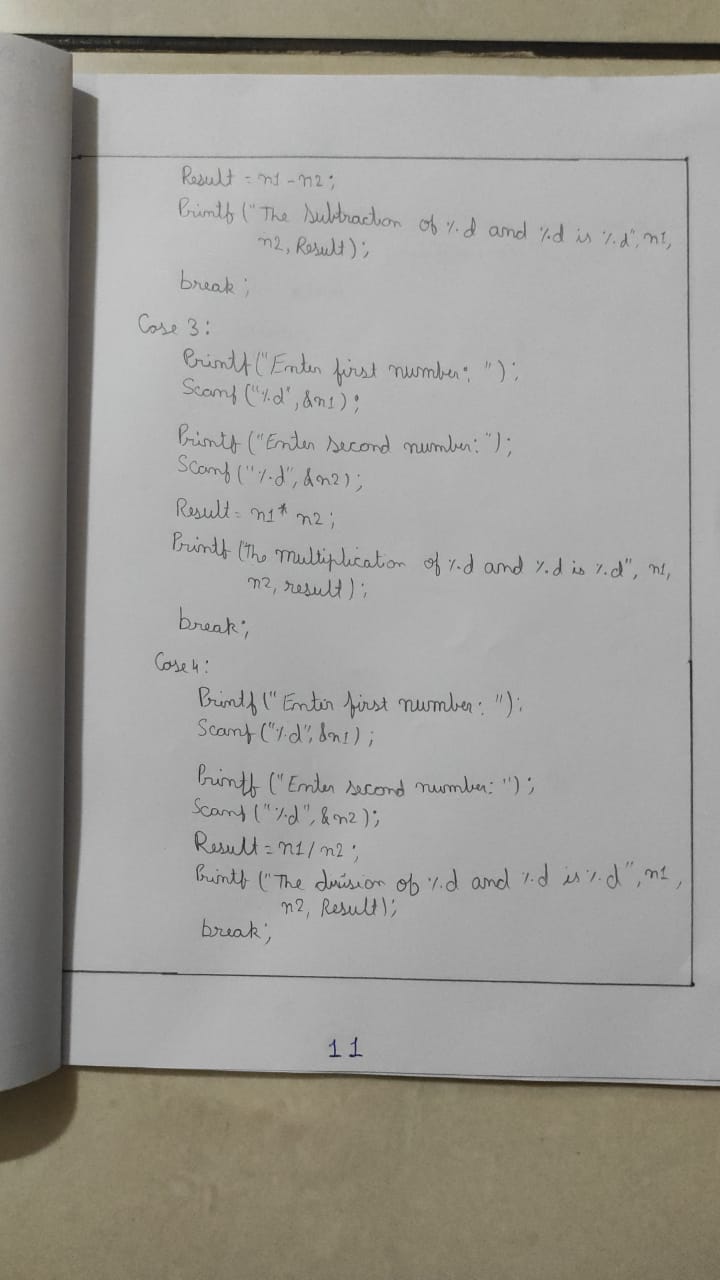 Result = n1 - n2;
Printf ("The Subtraction of %d and %d is %d", n1,
n2, Result);
break;
Case 3:
Printf ("Enter first number: ");
Scanf ("%d", &n1);
Printf ("Enter second number: ");
Scanf ("%d", &n2);
Result = n1* n2;
Printf (The multiplication of %d and %d is %d", n1,
n2, result);
break;
Case 4:
Printf ("Enter first number: ");
Scanf ("%d", &n1);
Printf ("Enter second number: ");
Scanf ("%d", &n2);
Result = n1/n2;
Printf ("The division of %d and %d is %d", n1,
n2, Result);
break;
11